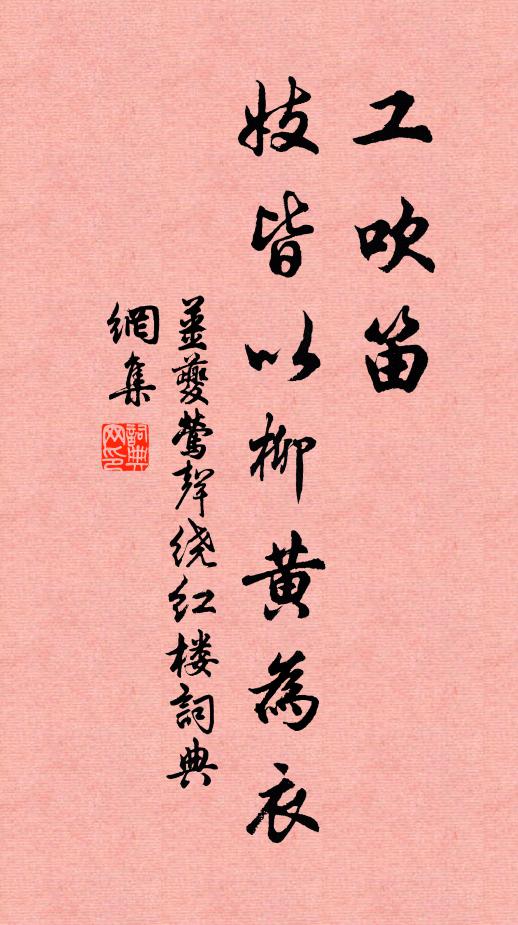 工吹笛
妓皆以柳黄為衣
姜夔鶯聲绕红楼詞典
網集
詞典網印